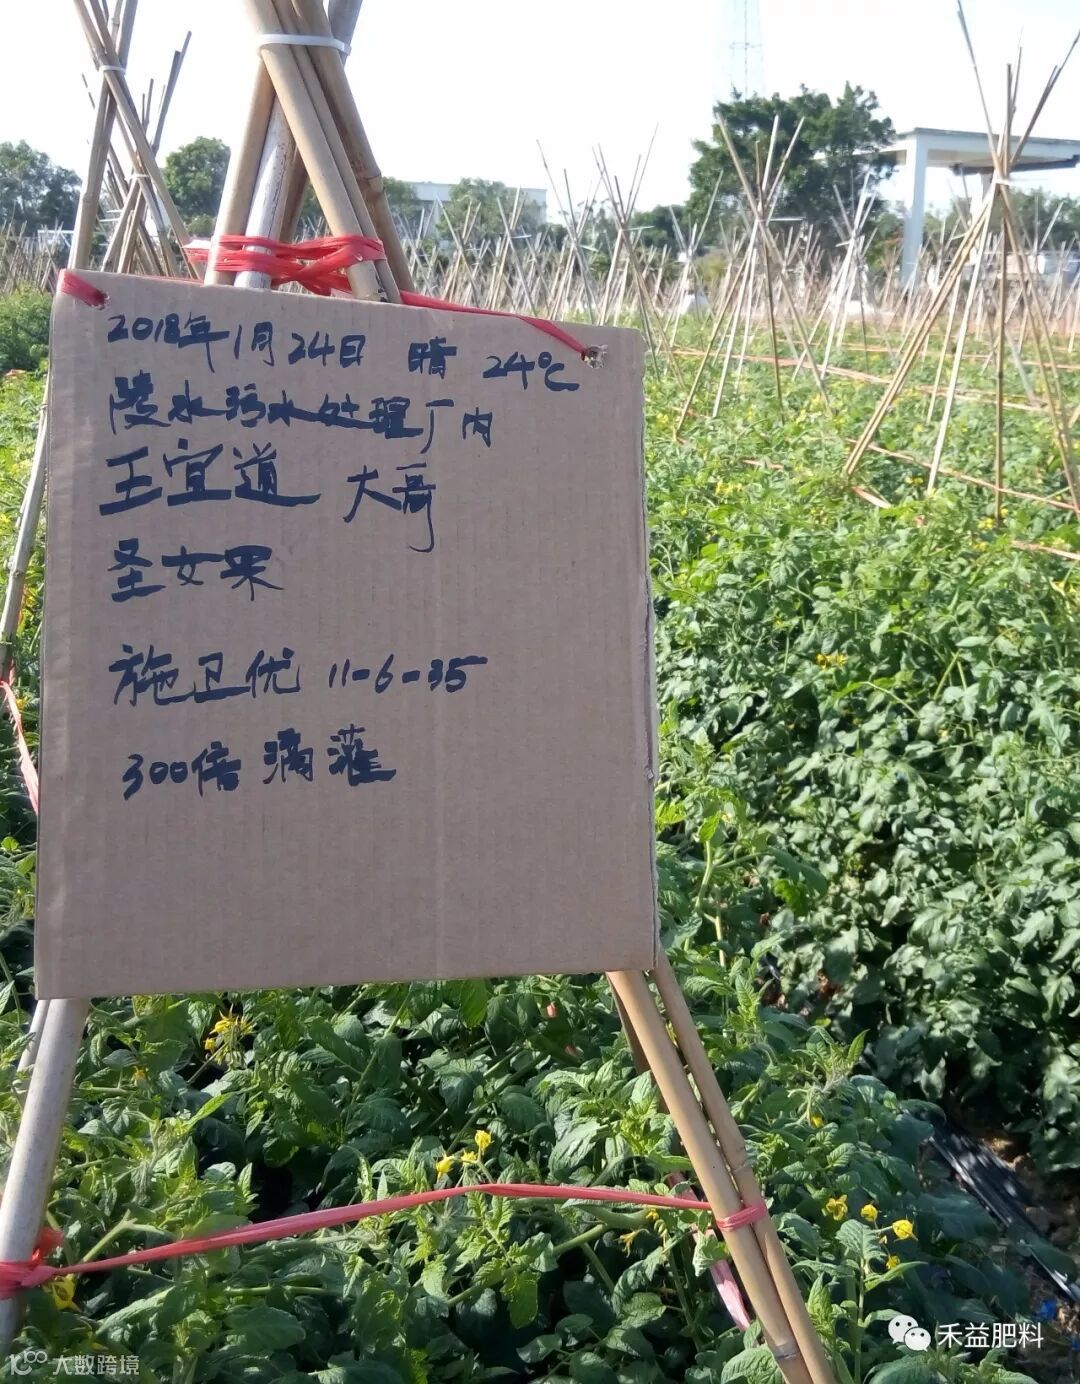 2018年1月24日 晴 24℃
陵水污水处理厂内
王宜道 大哥
圣女果
施卫优 11-6-35
300倍 滴灌
禾益肥料
大数跨境